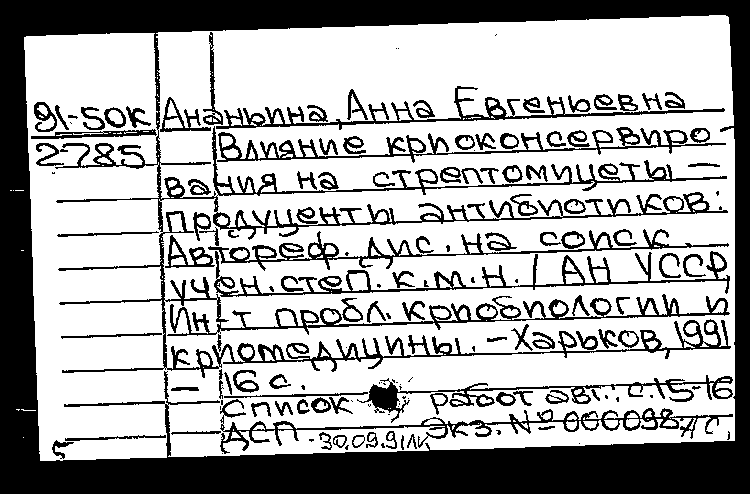 91-50к Ананьина, Анна Евгеньевна
2785 Влияние криоконсервиро-
вания на стрептомицеты –
продуценты антибиотиков:
Автореф. дис. на соиск.
учен. степ. к.м.н. / АН УССР,
Ин-т пробл. криобиологии и
криомедицины. – Харьков, 1991
– 16 с.
Список работ авт.: с. 15-16
ДСП. 30.09.91 Экз. № 000098.